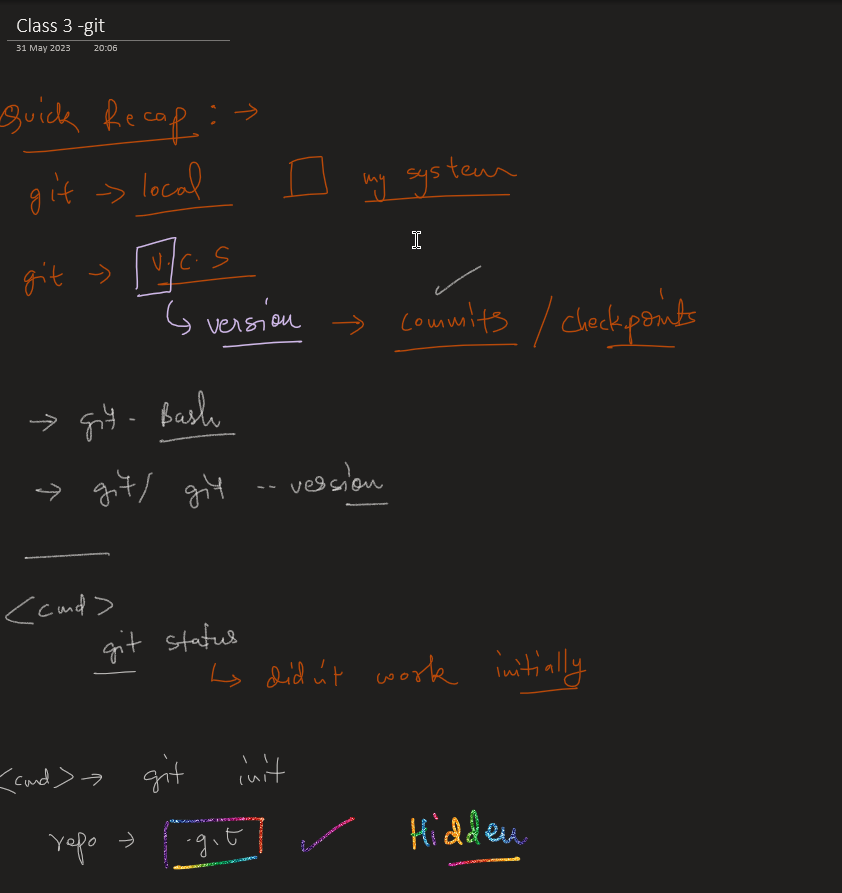 Class 3 -git
31 May 2023 20:06
Quick Recap : →
git → local my system
git → V.C.S
↳ version → commits / checkpoints
→ git - Bash
→ git/ git -- version
<cmd>
git status
↳ didn't work initially
<cmd> → git init
repo → .git ✓ Hidden